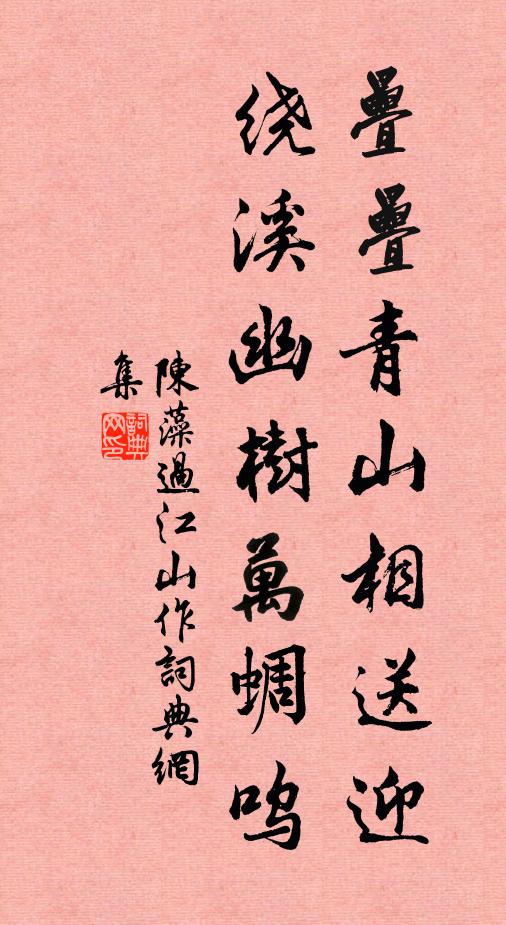 疊疊青山相送迎
绕溪幽樹萬蜩鸣
陳藻過江山作詞典網
集
詞典
网印